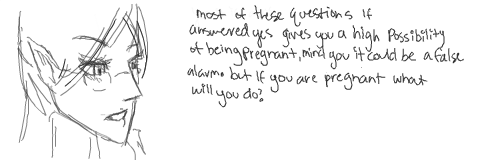 most of these questions if
answered yes gives you a high possibility
of being pregnant, mind you it could be a false
alarm. but if you are pregnant what
will you do?